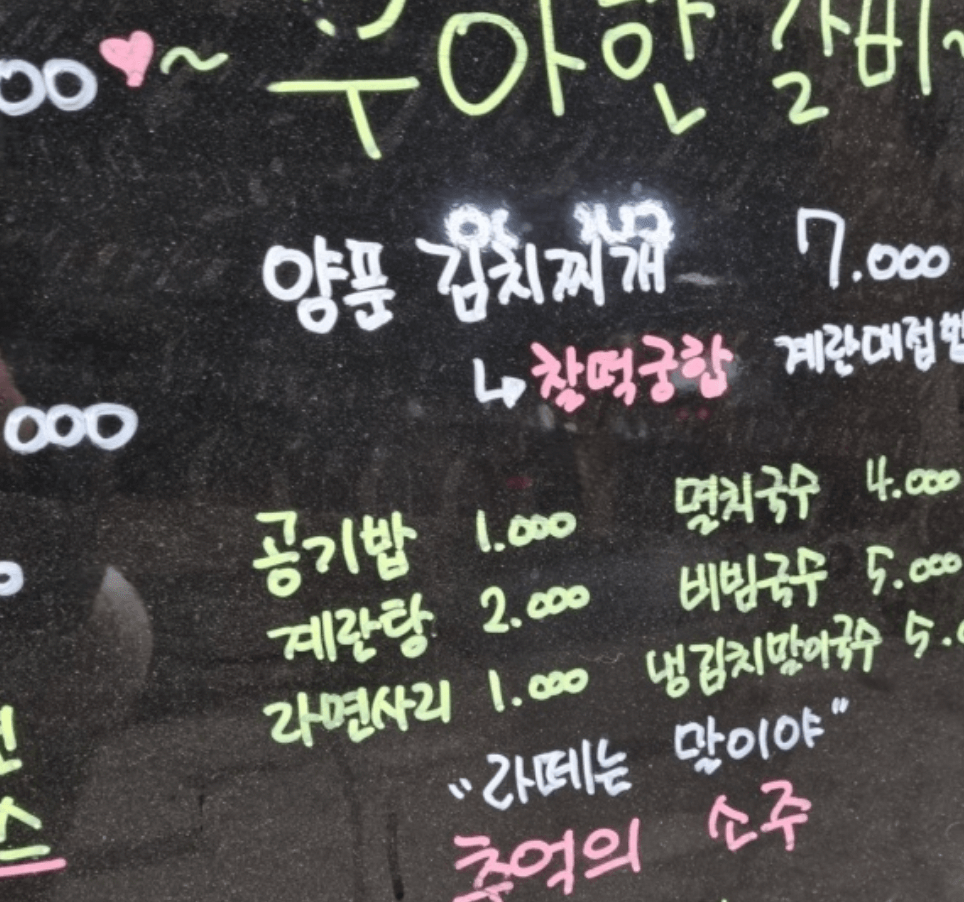 00♥~ 우아한 갈비~
양푼 김치찌개 7.000
↳ 찰떡궁합 계란대접밥
000
공기밥 1.000 멸치국수 4.000
계란탕 2.000 비빔국수 5.000
라면사리 1.000 냉김치말이국수 5.0
"라떼는 말이야"
추억의 소주
스